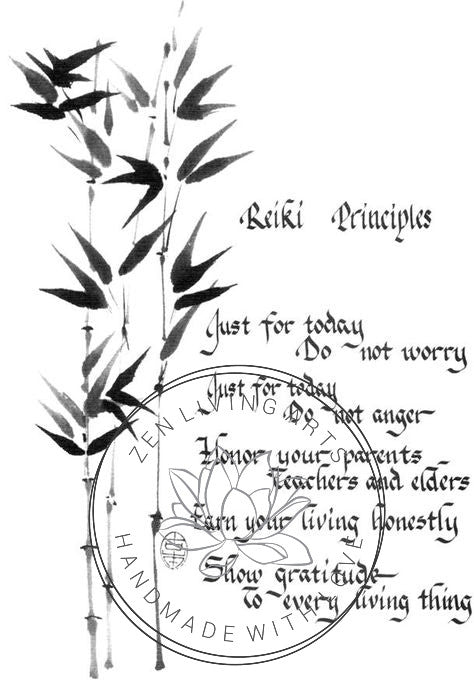 Reiki Principles
Just for today
Do not worry
Just for today
Do not anger
Honor your parents
teachers and elders
Earn your living honestly
Show gratitude
to every living thing
ZEN LIVING ARTS
HANDMADE WITH LOVE